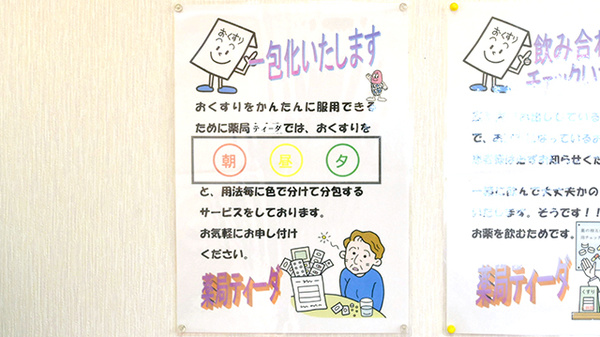 おくすり
一包化いたします
おくすりをかんたんに服用できる
ために薬局ティーダでは、おくすりを
朝 昼 夕
と、用法毎に色で分けて分包する
サービスをしております。
お気軽にお申し付け
ください。
薬局ティーダ
おくすり
飲み合わ
チェックい
している
で、
お知らせくだ
んで大丈夫かの
ます。そうです！！
お薬を飲むためです。
薬局ティーダ
くすり